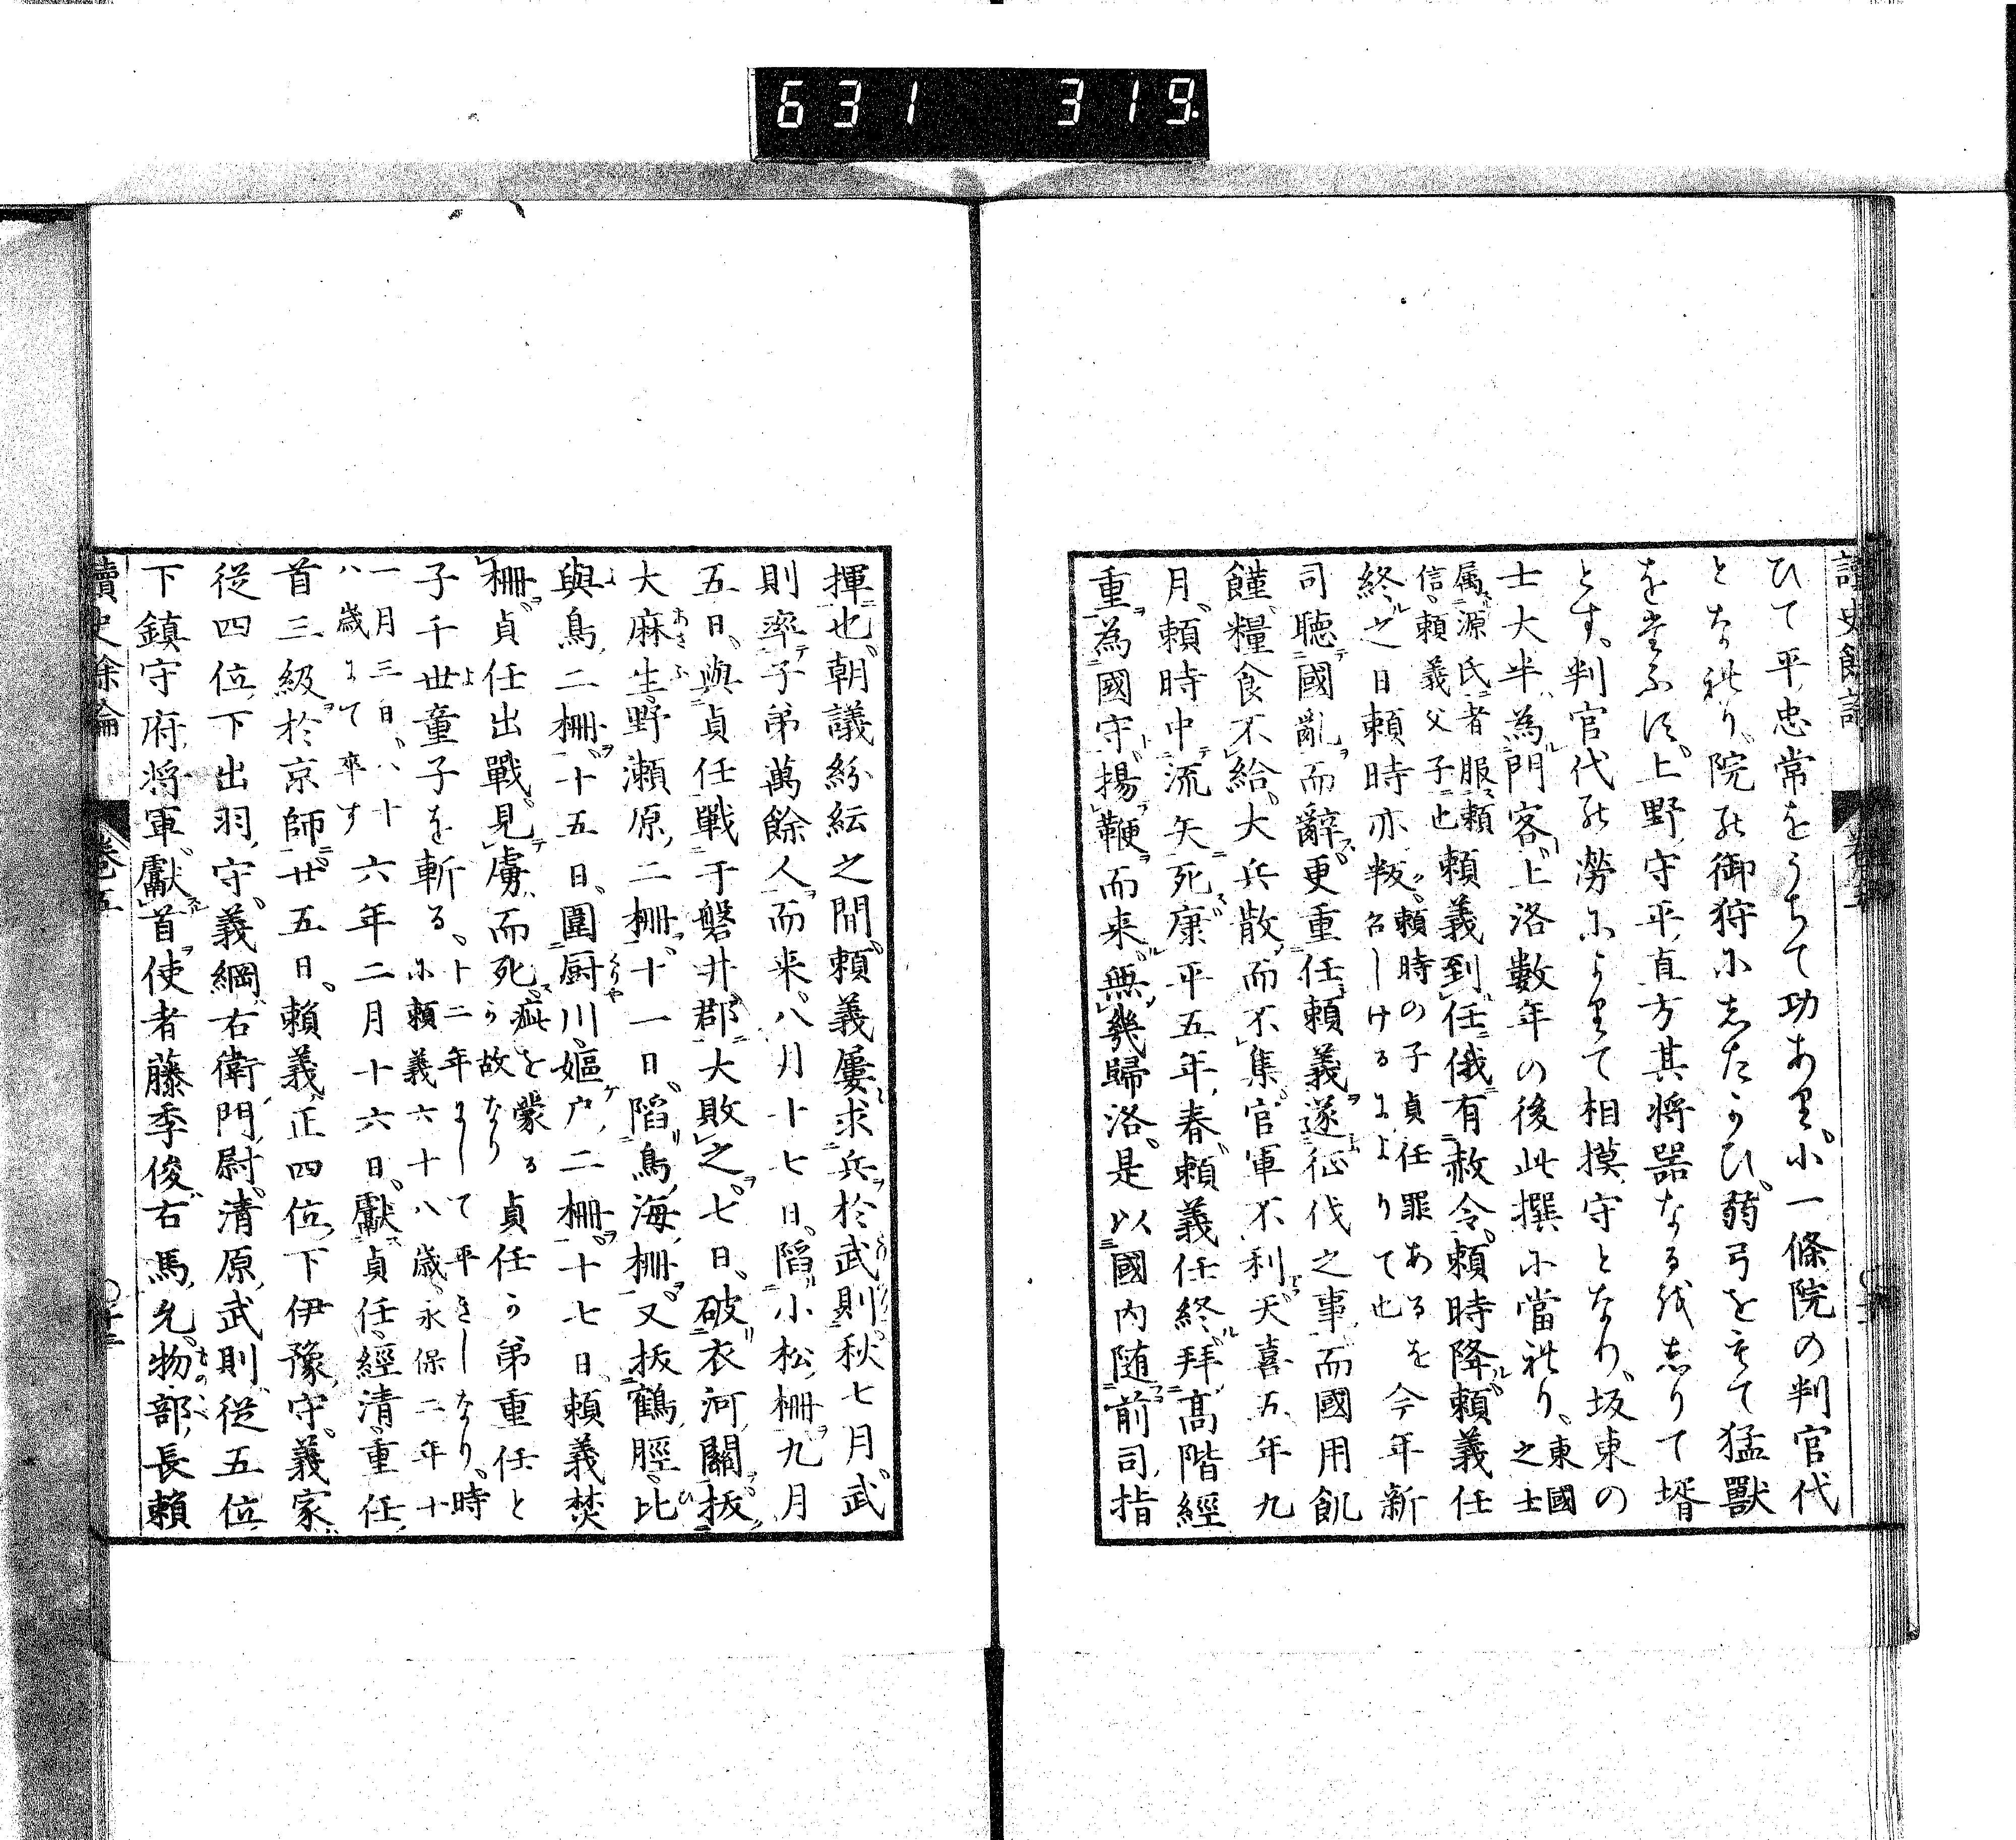 631 319
ひて平忠常をうちて功あり。小一條院の判官代
となれり。院の御狩にしたかひ。弱弓をもて猛獸
をたふす。上野守平直方其將器なるをしりて壻
とす。判官代の勞によりて相摸守となり、坂東の
士大半為門客。上洛數年の後此撰に當れり、東國之士
属源氏者服賴信、賴義父子也 賴義到任俄有赦令。賴時降賴義任
終之日賴時亦叛。賴時の子貞任罪あるを召しけるによりて也 今年新
司聴國亂而辭。更重任賴義遂征伐之事而國用飢
饉糧食不給。大兵散而不集。官軍不利。天喜五年九
月。賴時中流矢死。康平五年春。賴義任終。拜高階經
重為國守。揚鞭而来。無幾歸洛。是以國内随前司指
揮也。朝議紛紜之間。賴義屢求兵於武則。秋七月。武
則率子弟萬餘人而来。八月十七日。䧟小松柵。九月
五日。與貞任戰于磐井郡大敗之。七日。破衣河關。拔
大麻生野瀬原二柵。十一日。䧟鳥海柵。又拔鶴脛比
與鳥二柵。十五日。圍厨川嫗戸二柵。十七日。賴義焚
柵。貞任出戰。見虜而死。疵を蒙るか故なり 貞任か弟重任と
子千世童子を斬る、十二年にして平きしなり、時に賴義六十八歳、永保二年十
一月三日、八十八歳にて卒す 六年二月十六日。獻貞任經清重任
首三級於京師。廿五日。賴義正四位下伊豫守。義家
從四位下出羽守。義綱右衛門尉。清原武則從五位
下鎮守府將軍。獻首使者藤季俊右馬允。物部長賴
讀史餘論 卷五